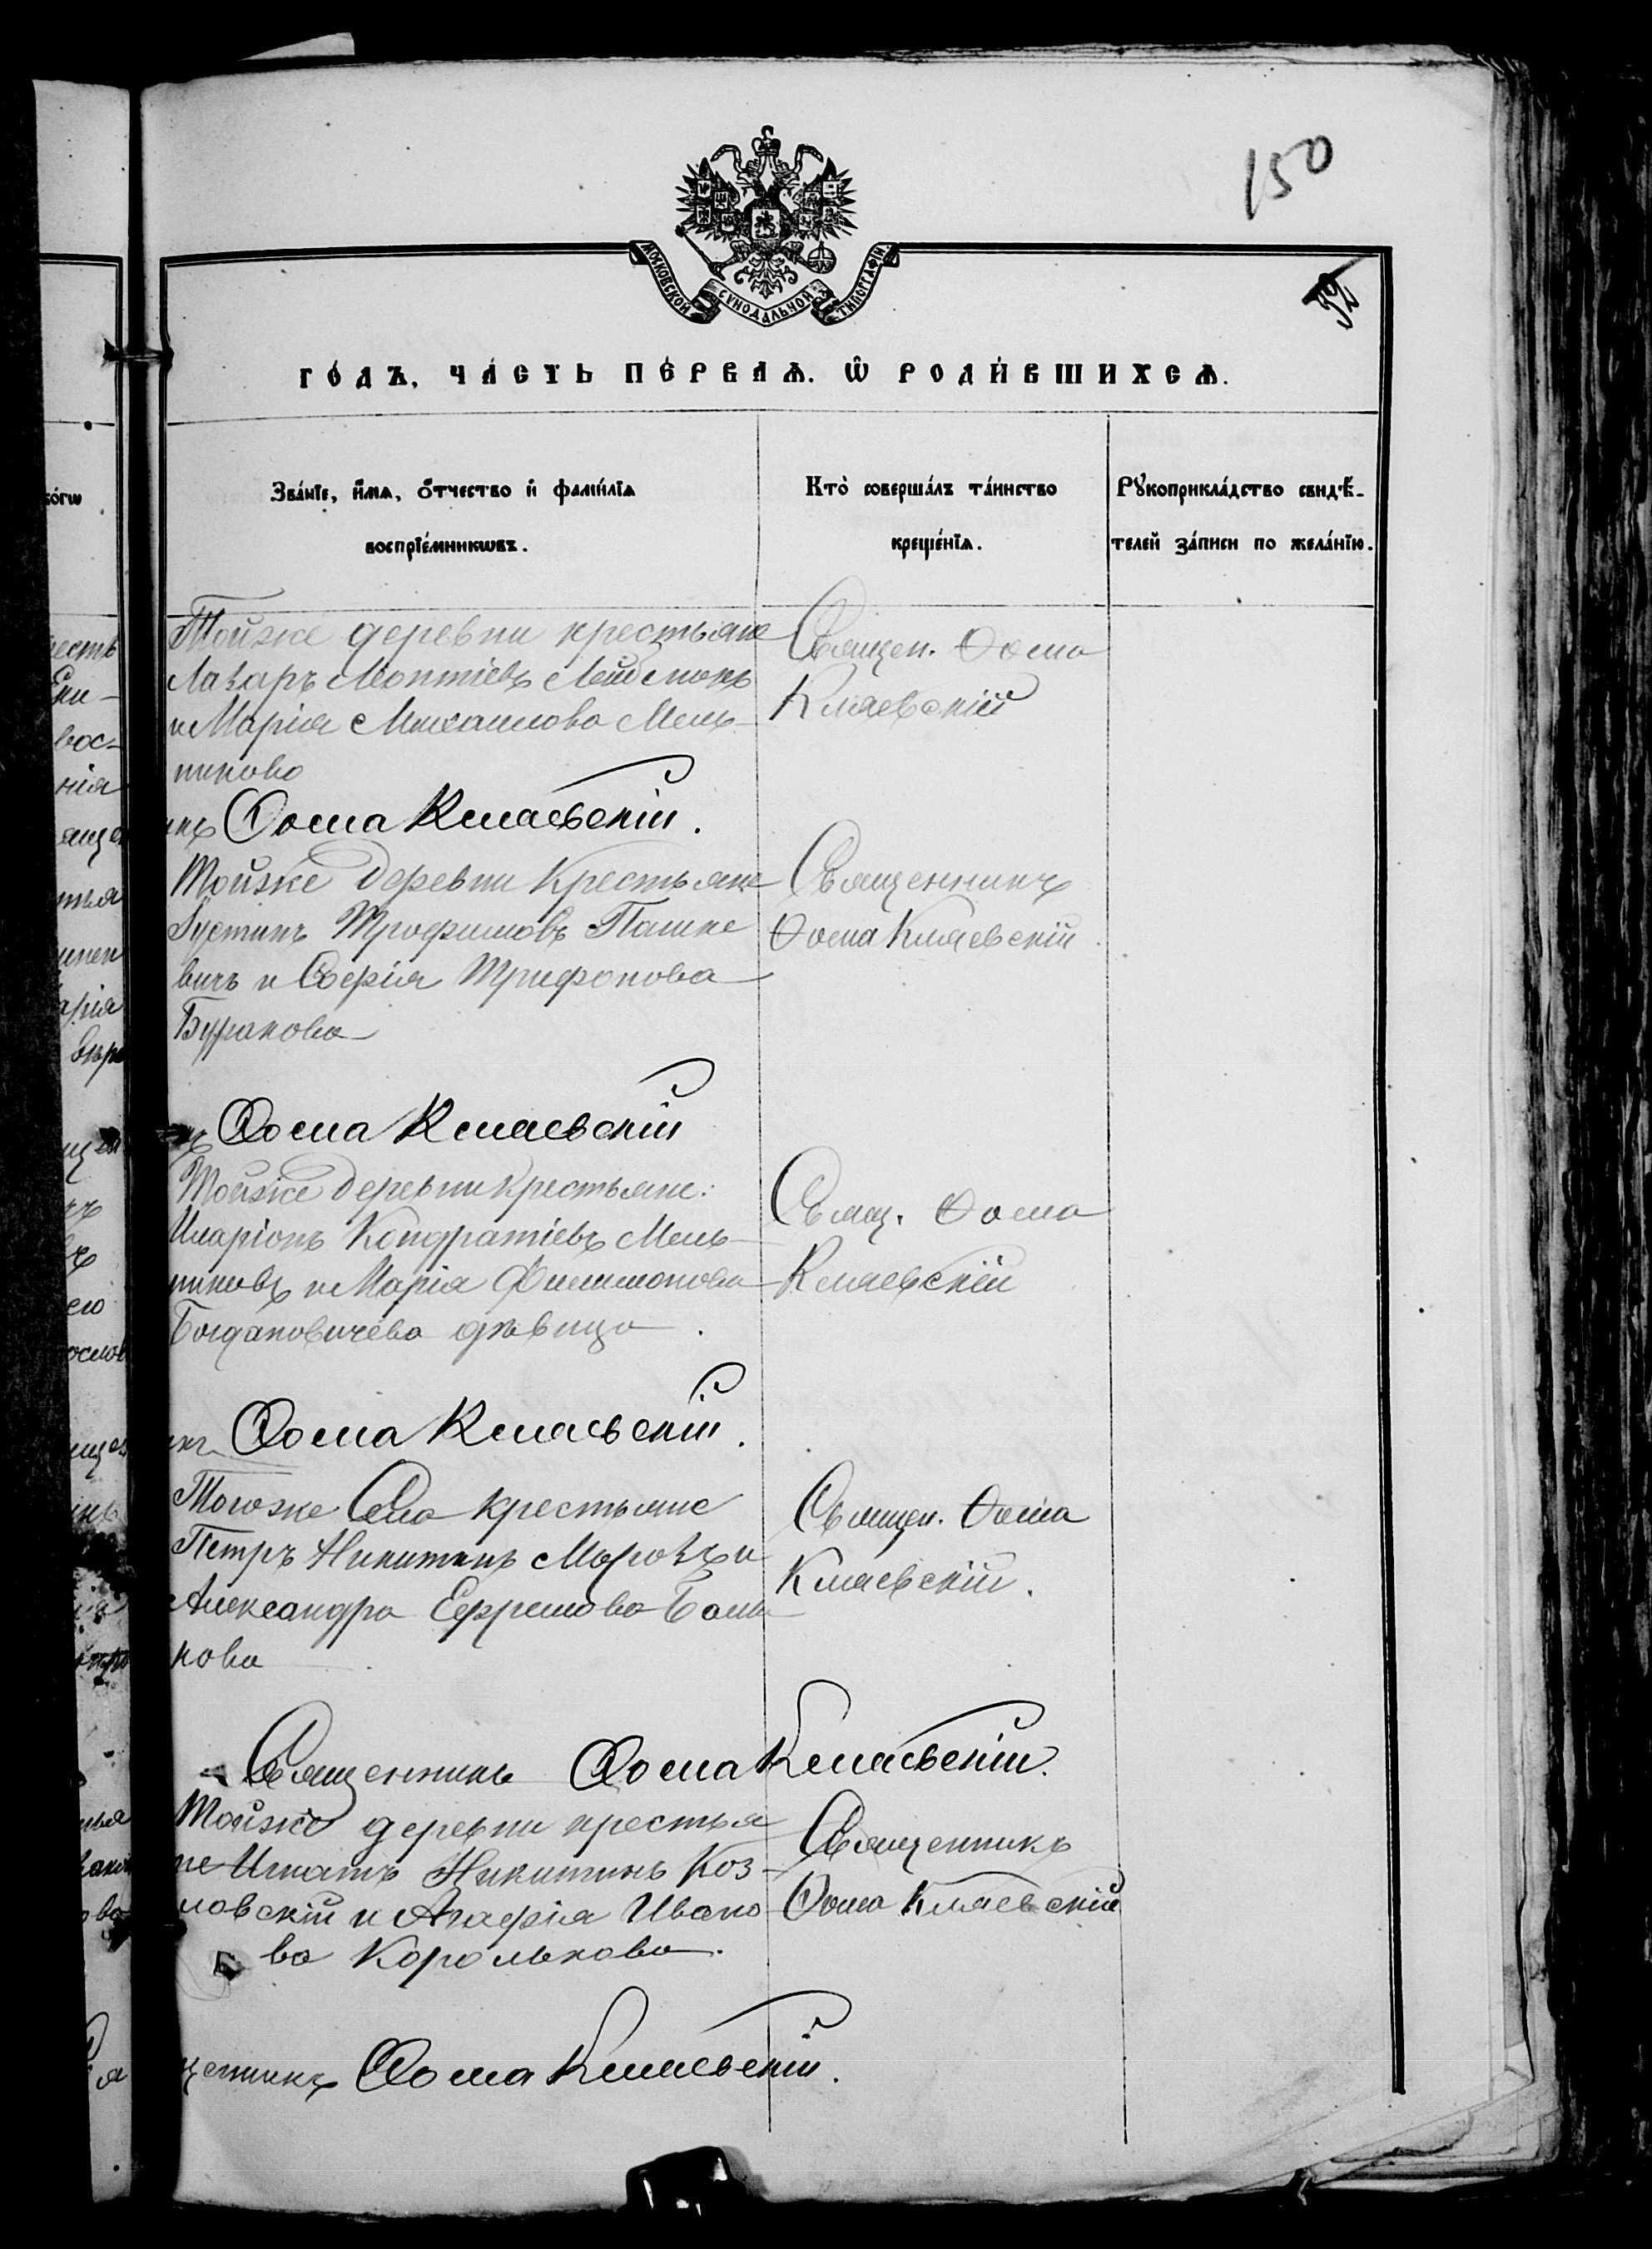 150
МОСКОВСКОЙ СУНОДАЛЬНОЙ ТИПОГРАФІИ.
ГО́ДЪ, ЧА́СТЬ ПЕ́РВАѦ. Ѽ РОДИ́ВШИХСѦ.
Зва́нїе, и҆́мѧ, ѻ҆́тчество и҆ фами́лїѧ
воспрїе́мникѡвъ.
Кто̀ соверша́лъ та́инство
креще́нїѧ.
Рꙋкоприкла́дство свидѣ́-
телей за́писи по жела́нїю.
Тойже деревни крестьяне
Лазаръ Леонтіевъ
и Марія Михаилова Мель-
никова
Священ. Ѳома
Кмаевскій
икъ Ѳома Кмаевскій.
Тойже деревни крестьяне
Іустинъ Трофимовъ Пашке
вичъ и Софія Трифонова
Буракова
Священникъ
Ѳома Кмаевскій
ъ Ѳома Кмаевскій
Тойже деревни крестьяне:
Иларіонъ Кондратіевъ Мель-
никовъ и Марія Филимонова
Богдановичева дѣвица.
Свящ. Ѳома
Кмаевскій
икъ Ѳома Кмаевскій.
Тогоже Села крестьяне
Петръ Никитинъ Морозъ и
Александра Ефремова
кова
Священ. Ѳома
Кмаевскій.
Священникъ Ѳома Кмаевскій.
Тойже деревни крестья
не Игнатъ Никитинъ Коз-
ловскій и Агафія Ивано
ва Королькова.
Священникъ
Ѳома Кмаевскій
щенникъ Ѳома Кмаевскій.